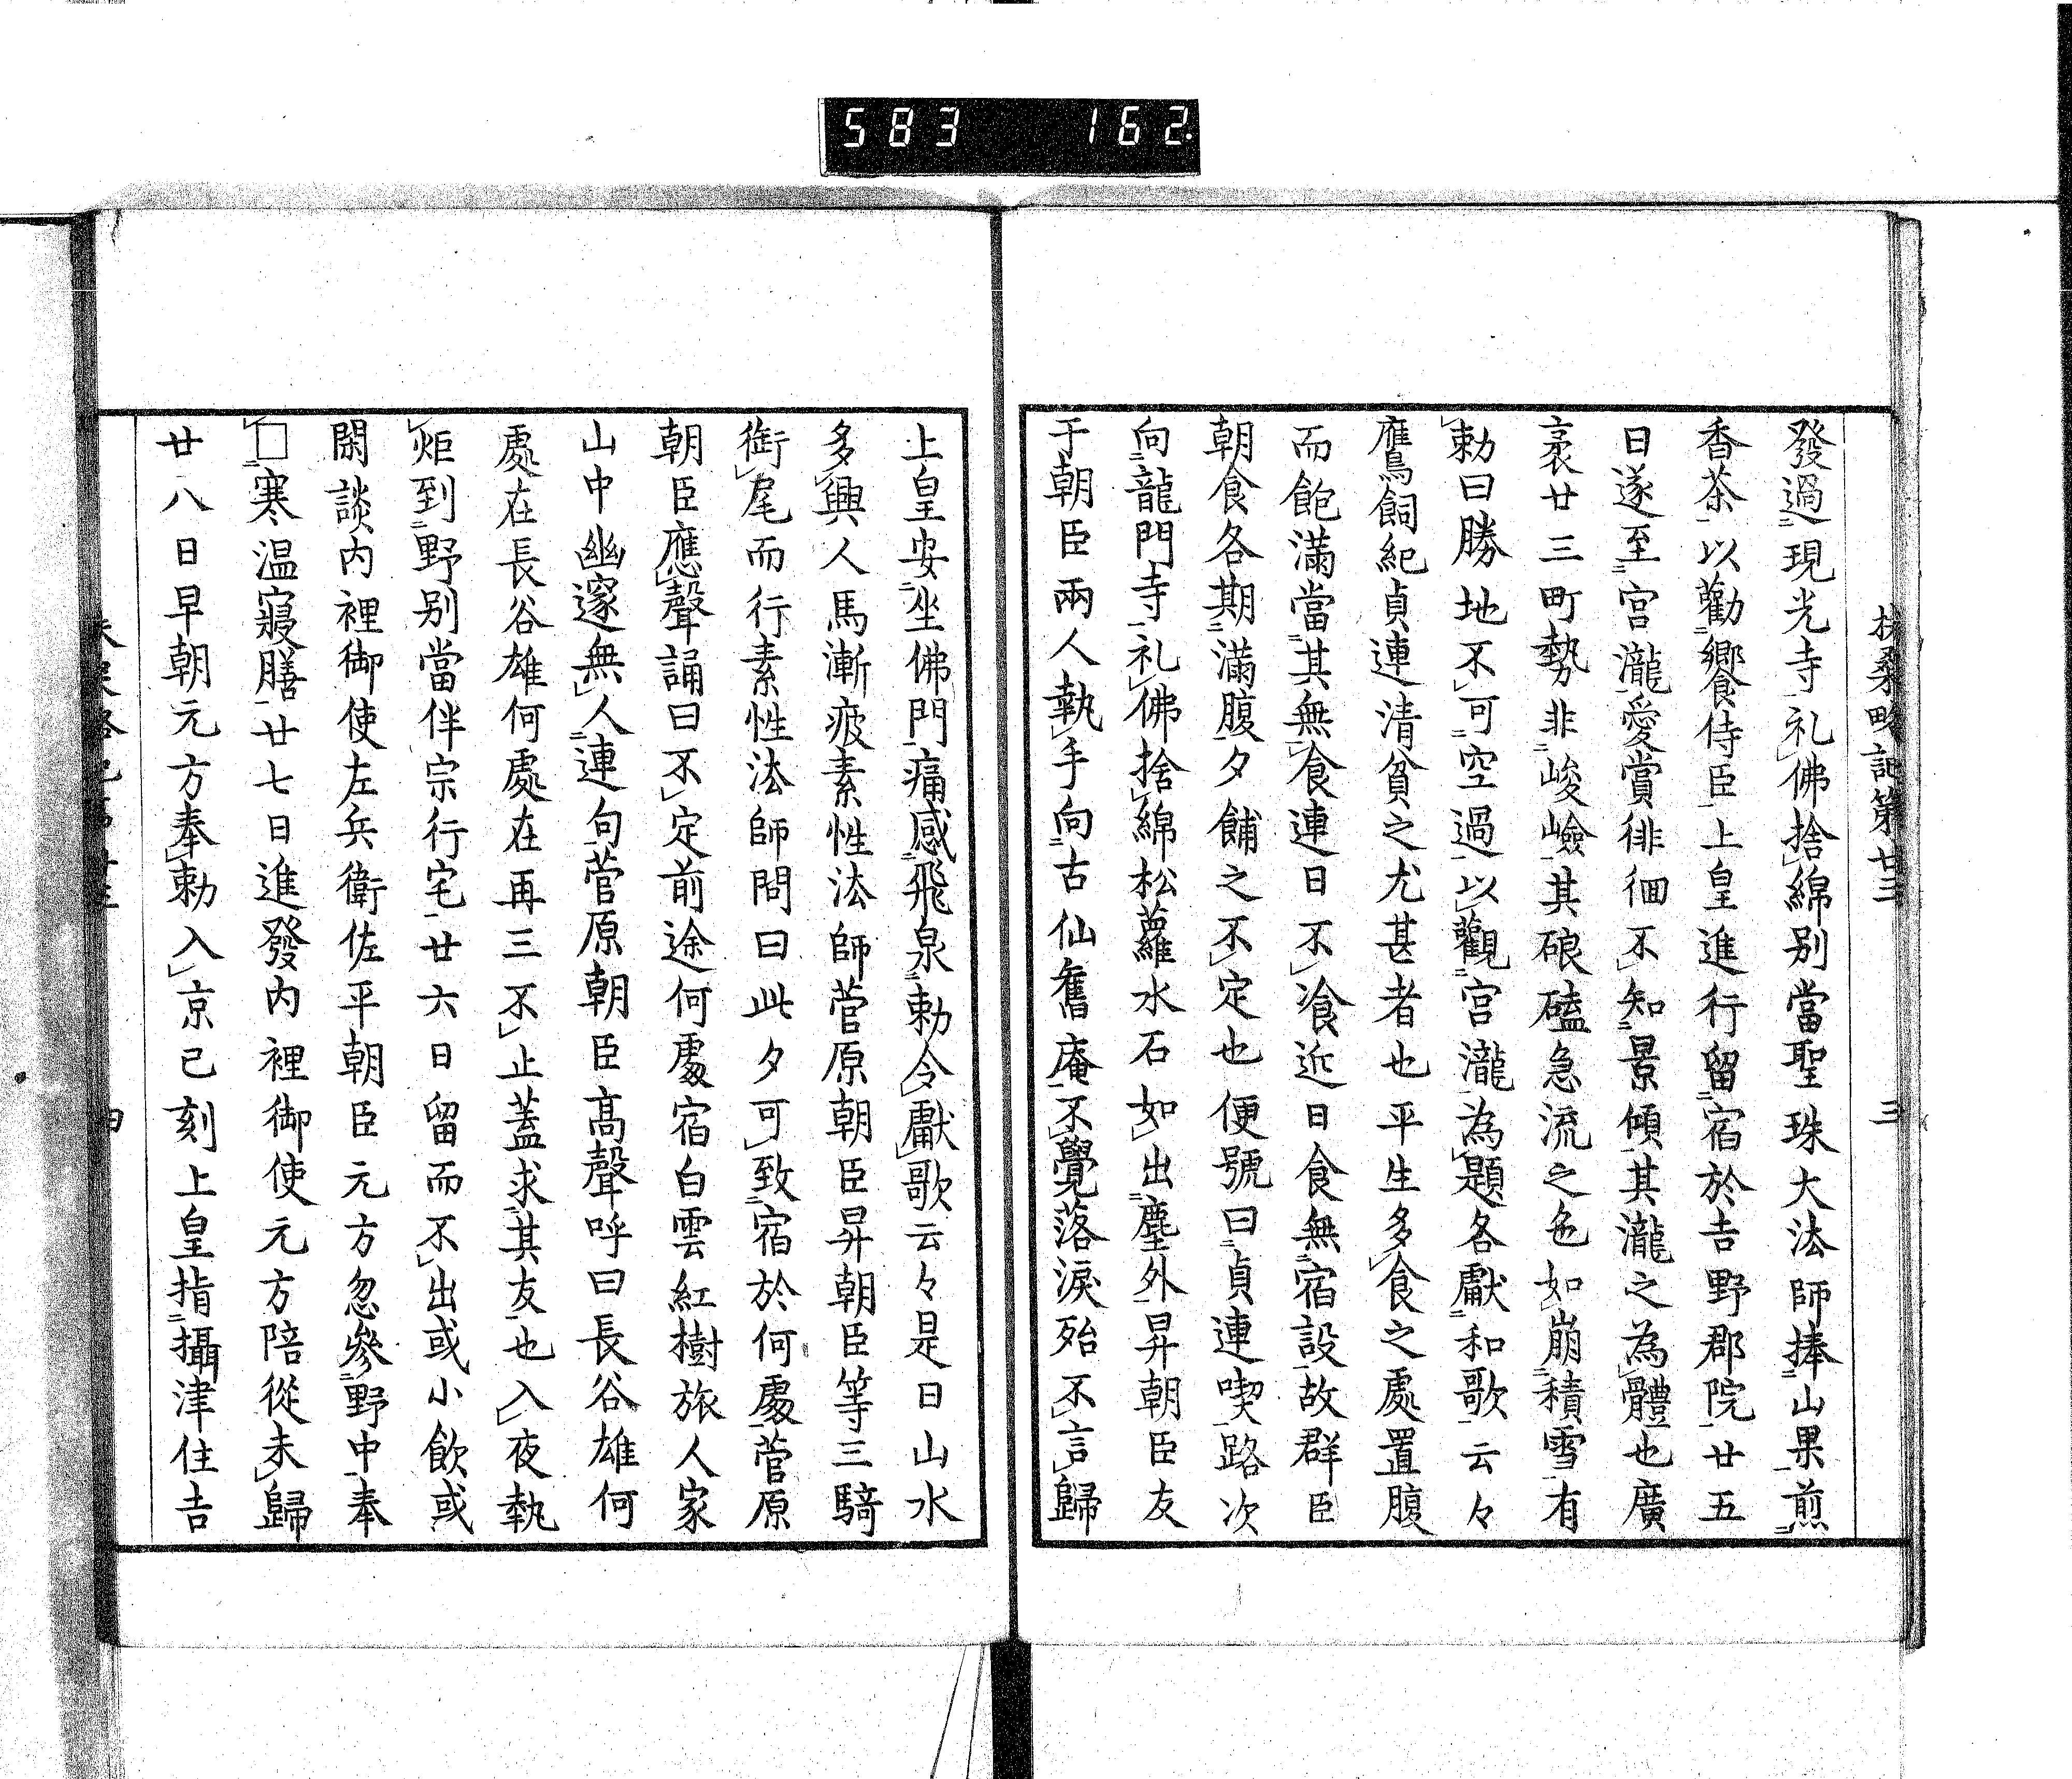 583 162
扶桑略記第廿三 三
發過現光寺礼佛捨綿別當聖珠大法師捧山果煎
香茶以勸饗侍臣上皇進行留宿於吉野郡院廿五
日遂至宮瀧愛賞徘徊不知景傾其瀧之為體也廣
袤廿三町勢非峻嶮其硠磕急流之色如崩積雪有
勅曰勝地不可空過以觀宮瀧為題各獻和歌云々
鷹飼紀貞連清貧之尤甚者也平生多食之處置腹
而飽滿當其無食連日不飡近日食無宿設故群臣
朝食各期滿腹夕餔之不定也便號曰貞連喫路次
向龍門寺礼佛捨綿松蘿水石如出塵外昇朝臣友
于朝臣兩人執手向古仙舊庵不覺落淚殆不言歸
上皇安坐佛門痛感飛泉勅令獻歌云々是日山水
多興人馬漸疲素性法師菅原朝臣昇朝臣等三騎
銜尾而行素性法師問曰此夕可致宿於何處菅原
朝臣應聲誦曰不定前途何處宿白雲紅樹旅人家
山中幽邃無人連句菅原朝臣高聲呼曰長谷雄何
處在長谷雄何處在再三不止蓋求其友也入夜執
炬到野別當伴宗行宅廿六日留而不出或小飲或
閑談内裡御使左兵衛佐平朝臣元方忽參野中奉
□寒温寢膳廿七日進發内裡御使元方陪從未歸
廿八日早朝元方奉勅入京已刻上皇指攝津住吉